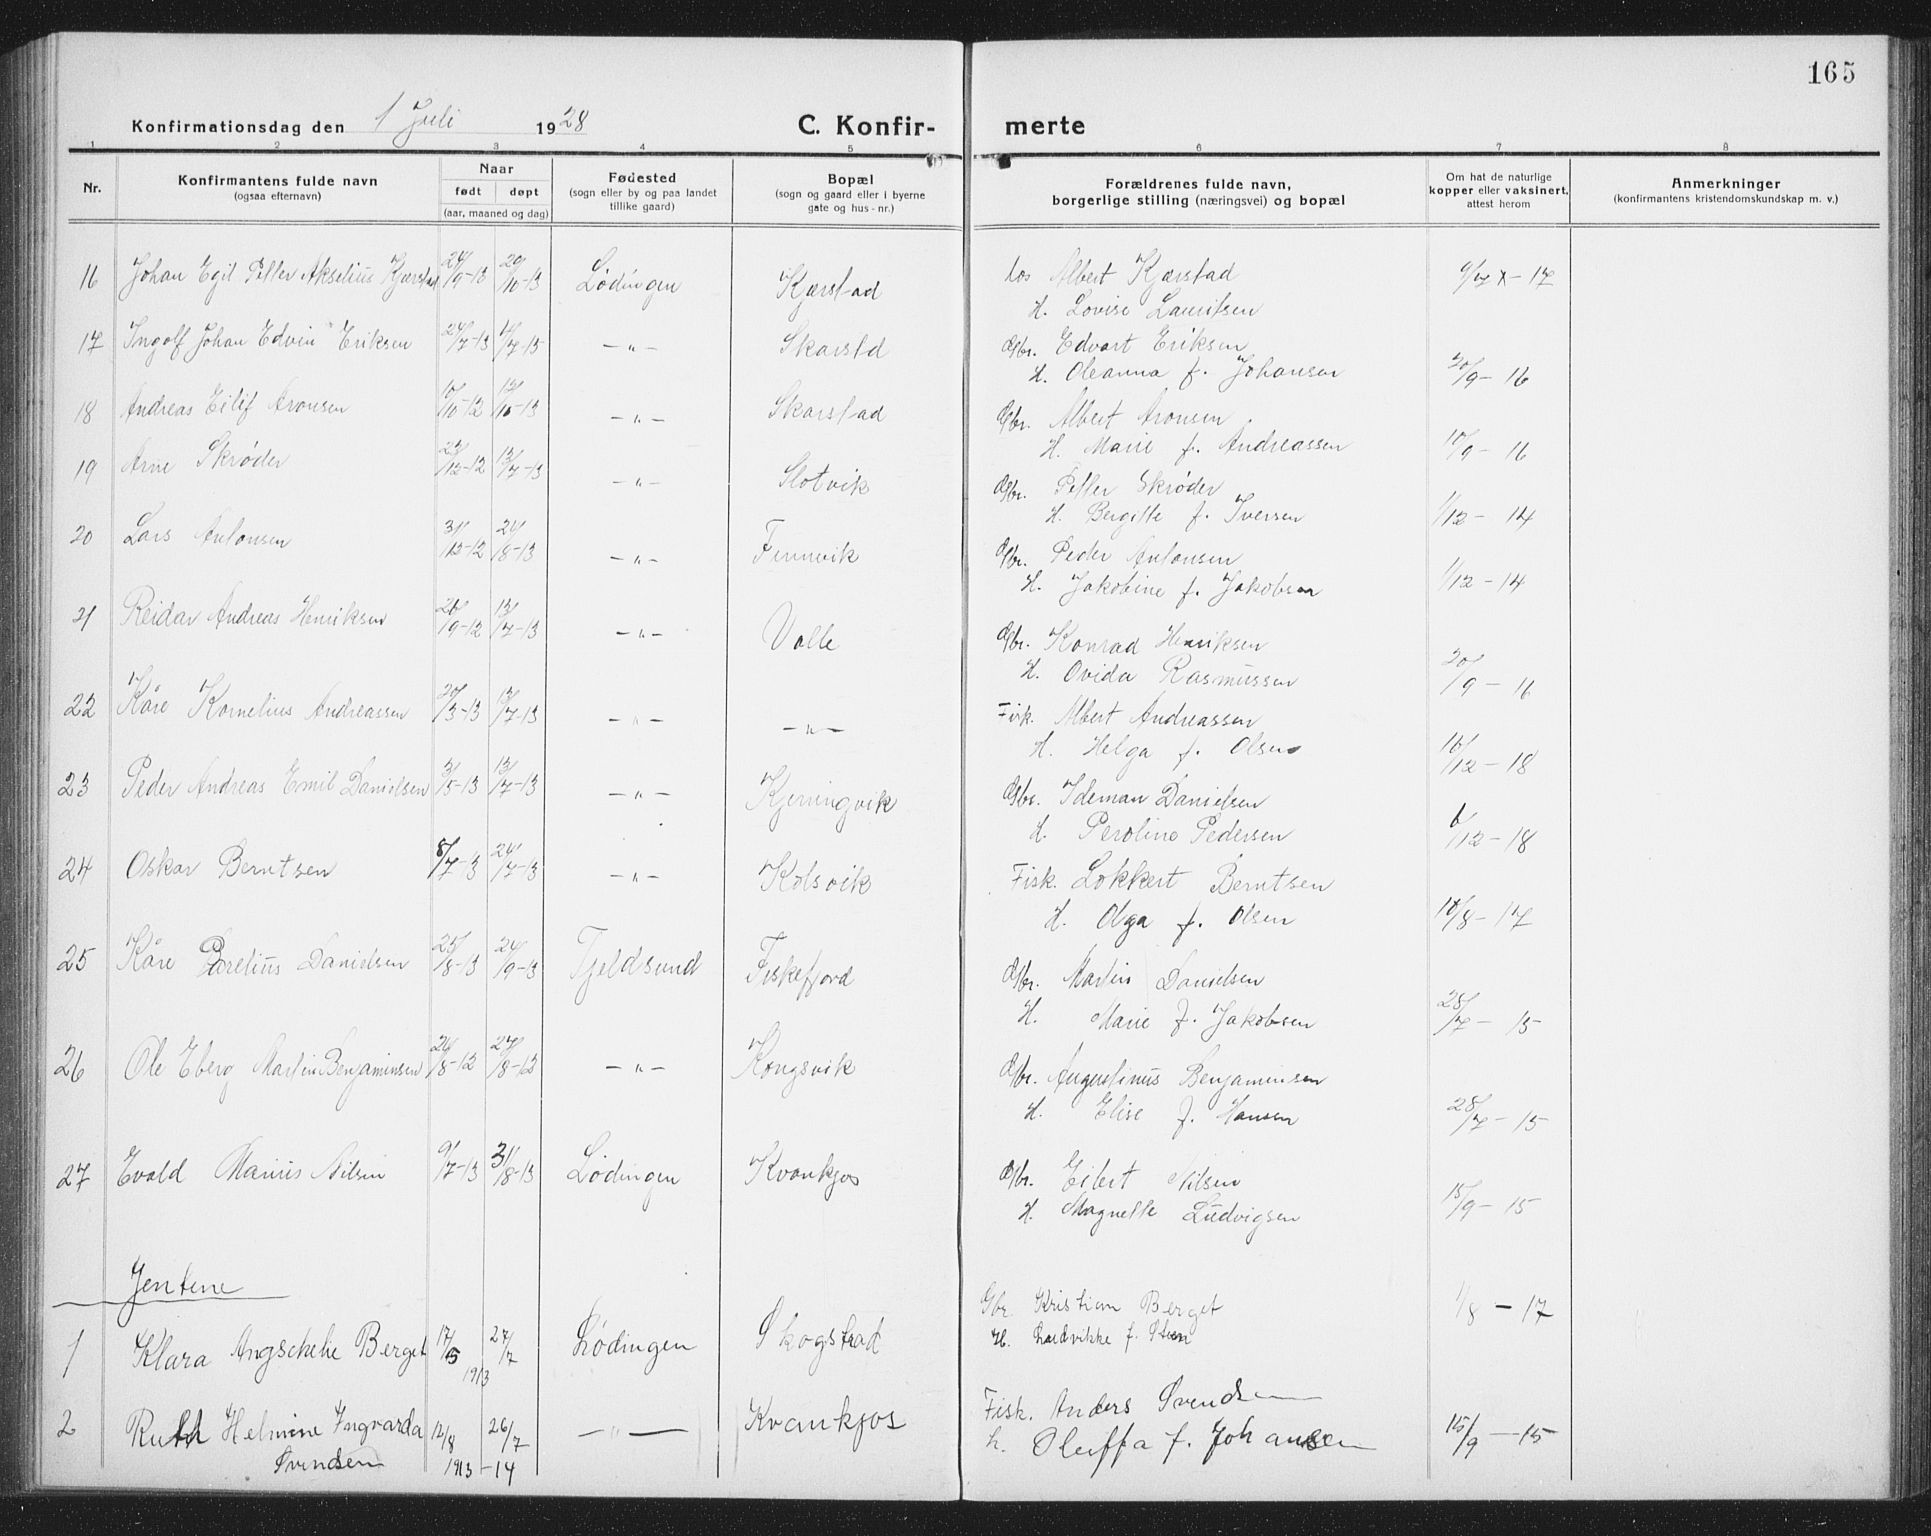 165
Konfirmationsdag den 1 Juli 1928
C. Konfir- merte
1 2 3 4 5 6 7 8
Nr.
Konfirmantens fulde navn
(ogsaa efternavn)
Naar
født døpt
(aar, maaned og dag)
Fødested
(sogn eller by og paa landet
tillike gaard)
Bopæl
(sogn og gaard eller i byerne
gate og hus-nr.)
Forældrenes fulde navn,
borgerlige stilling (næringsvei) og bopæl
Om hat de naturlige
kopper eller vaksinert,
attest herom
Anmerkninger
(konfirmantens kristendomskundskap m. v.)
16 Johan Egil Petter Akselius Kjærstad 24/9-13 20/10-13 Lødingen Kjærstad Albert Kjærstad
H. Lovise Lauritsen
17 Ingolf Johan Edvin Eriksen 24/7-13 -"- Skarstd Gbr. Edvart Eriksen
H. Oleanna f. Johansen 20/9-16
18 Andreas Eilif Aronsen 10/10-12 12/10-13 -"- Skarstad Gbr. Albert Aronsen
H. Marie f. Andreassen 10/9-16
19 Arne Skrøder 25/12-12 13/7-13 -"- Slotvik Gbr. Petter Skrøder
H. Bergitte f. Iversen 1/12-14
20 Lars Antonsen 31/12-12 24/8-13 -"- Finnvik Gbr. Peder Antonsen
H. Jakobine f. Jakobsen 1/12-14
21 Reidar Andreas Henriksen 26/9-12 13/7-13 -"- Valle Gbr. Konrad Henriksen
H. Ovida Rasmussen 20/9-16
22 Kåre Kornelius Andreassen 20/3-13 13/7-13 -"- -"- Fisk. Albert Andreassen
H. Helga f. Olsen 16/12-18
23 Peder Andreas Emil Danielsen 3/5-13 13/7-13 -"- Kjeringvik Gbr. Ideman Danielsen
H. Peroline Pedersen 6/12-18
24 Oskar Berntsen 8/7-13 24/7-13 -"- Kolsvik Fisk. Lokkert Berntsen
H. Olga f. Olsen 18/8-17
25 Kåre Parelius Danielsen 25/8-13 24/9-13 Tjeldsund Fiskefjord Gbr. Martin Danielsen
H. Marie f. Jakobsen 28/7-15
26 Ole Eberg Martin Benjaminsen 26/8-12 27/8-12 -"- Kongsvik Gbr. Augustinus Benjaminsen
H. Elise f. Hansen 28/7-15
27 Evald Marius Nilsen 9/7-13 31/8-13 Lødingen Kvankjos Gbr. Eilert Nilsen
H. Magnelle Ludvigsen 15/9-15
Jentene
1 Klara Angschelie Berget 17/5 1913 27/7 Lødingen Skogstad Gbr. Kristian Berget
H. Ludvikke f. Steen 1/8-17
2 Ruth Helmine Ingvarda 12/8 26/7 -"- Kvankjos Fisk. Anders Svendsen
Svendsen 1913-14 h. Oluffa f. Johansen 15/9-15